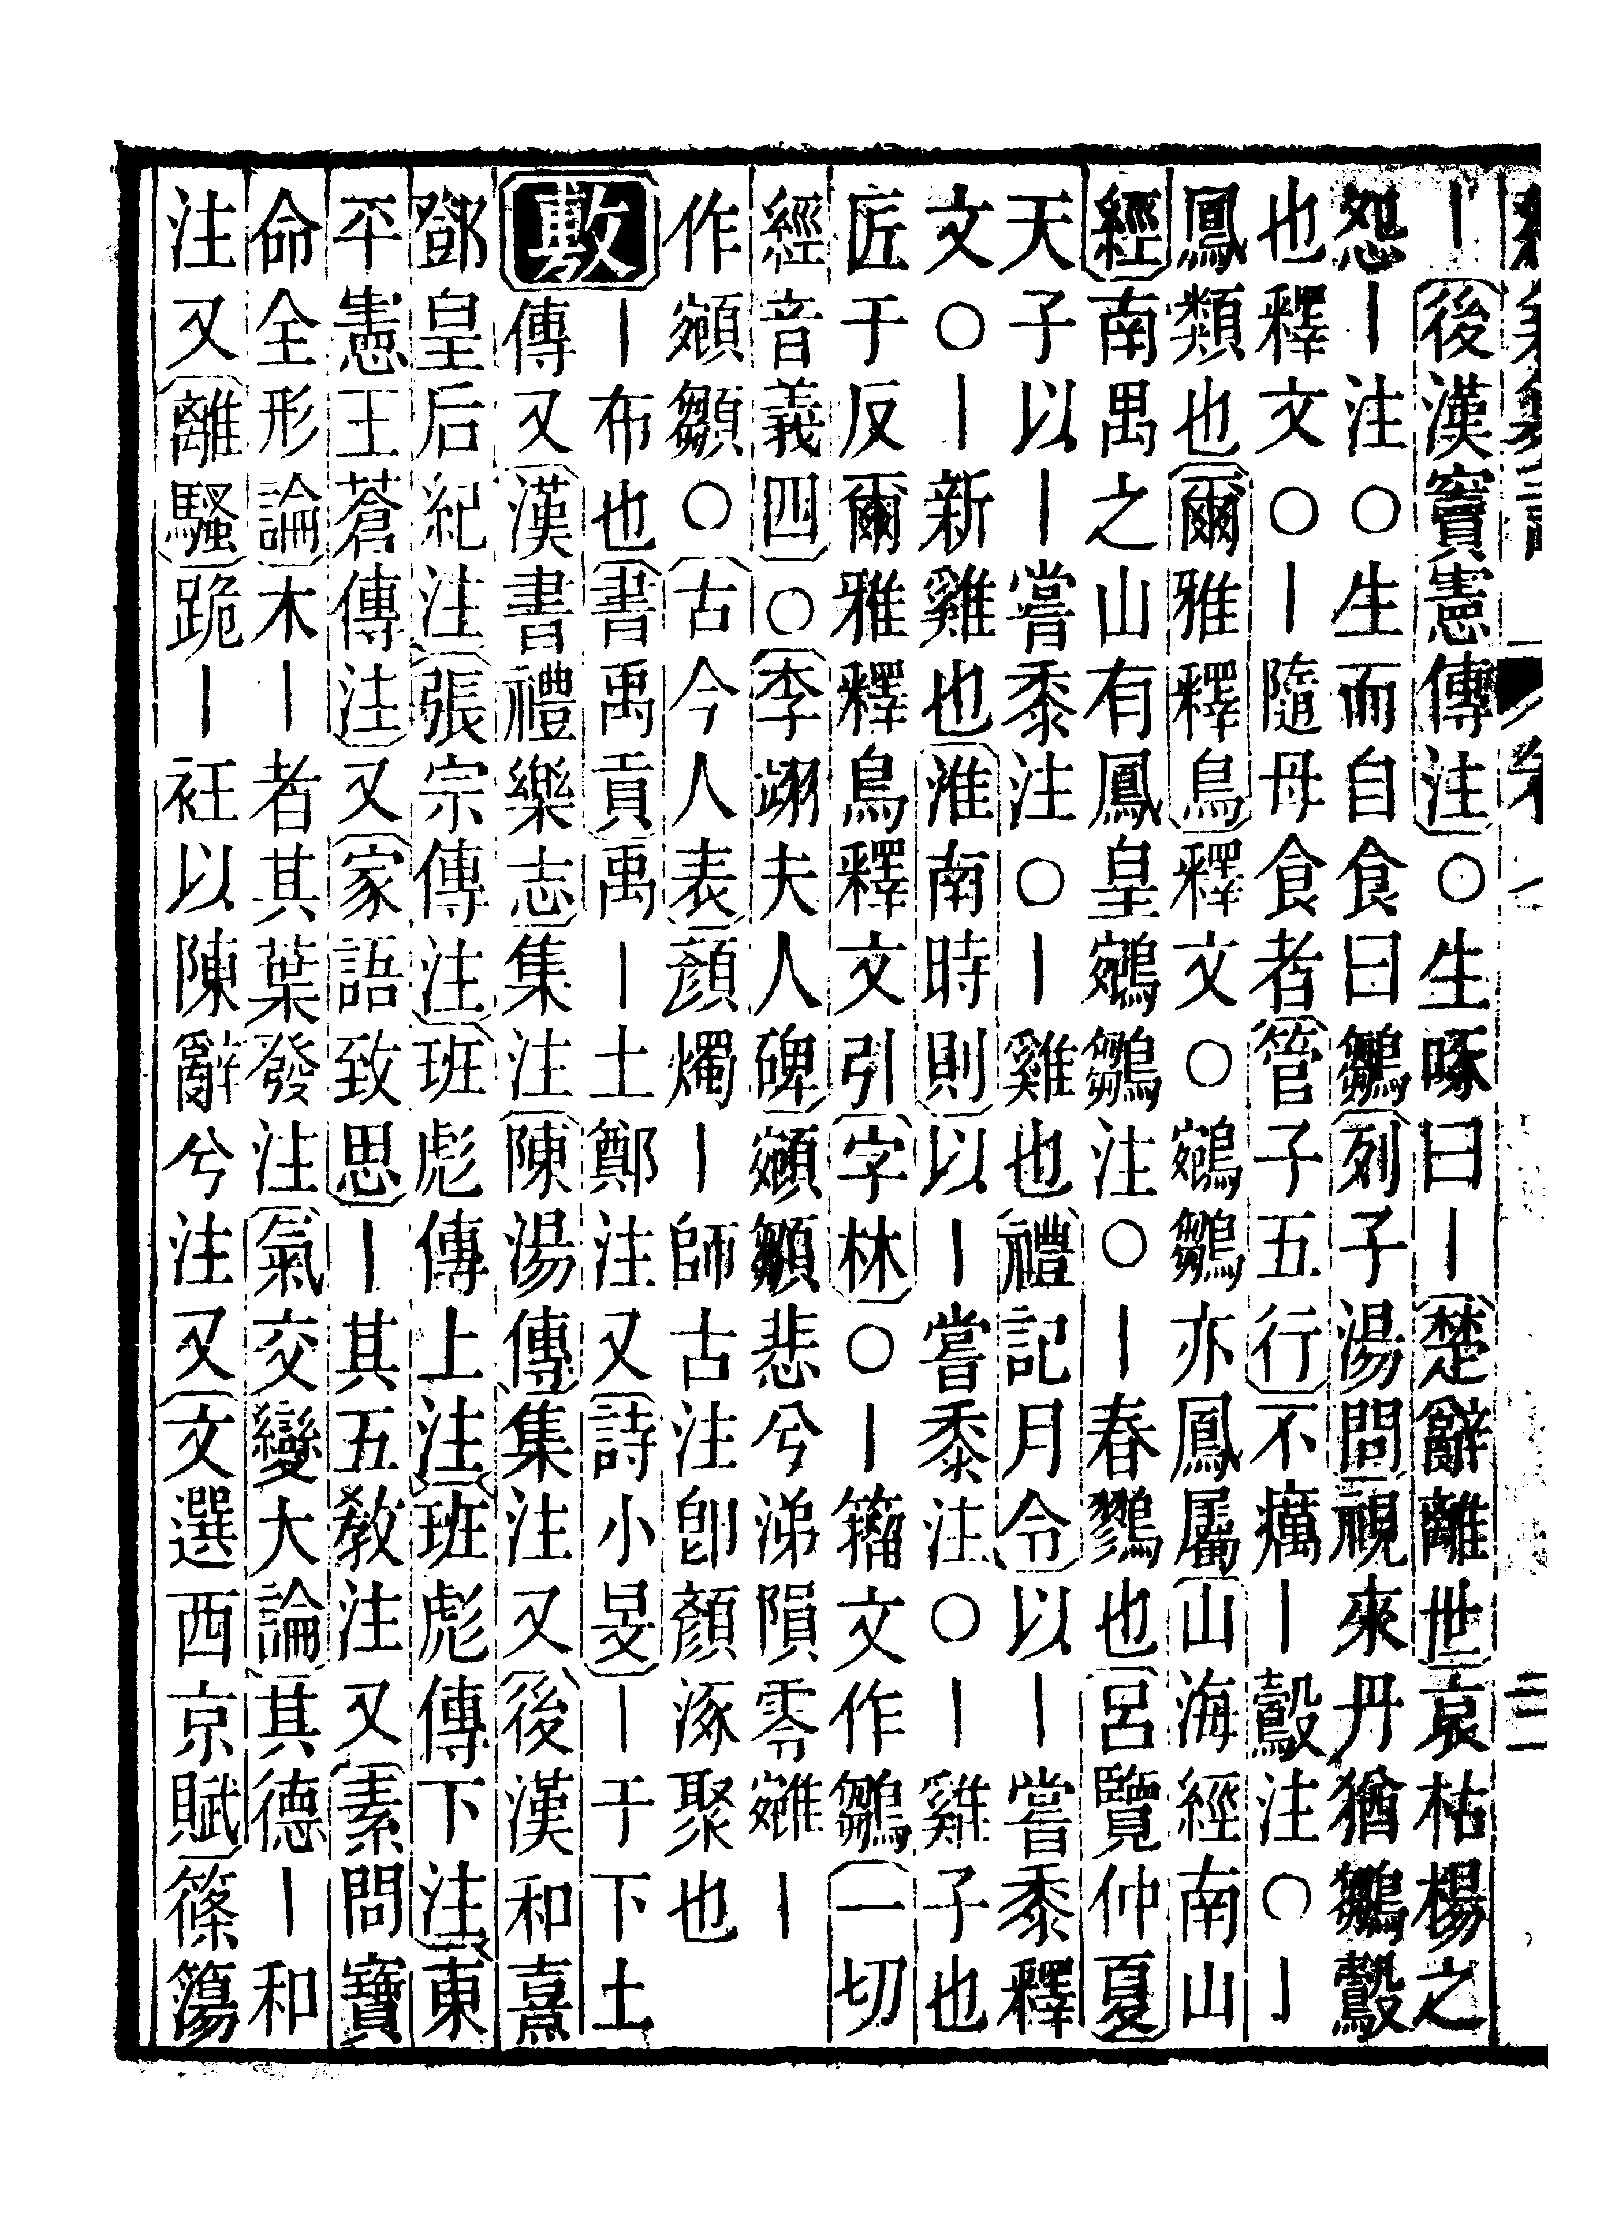 丨後漢竇憲傳注○生啄曰丨楚辭離世哀枯楊之
怨丨注○生而自食曰鶵列子湯問視來丹猶鶵鷇
也釋文○丨隨母食者管子五行不癘丨鷇注○丨
鳳類也爾雅釋鳥釋文○鵷鶵亦鳳屬山海經南山
經南禺之山有鳳皇鵷鶵注○丨春鷚也呂覽仲夏
天子以丨嘗黍注○丨雞也禮記月令以丨嘗黍釋
文○丨新雞也淮南時則以丨嘗黍注○丨雞子也
匠于反爾雅釋鳥釋文引字林○丨籀文作鶵一切
經音義四○李翊夫人碑悲兮涕隕零丨
作○古今人表顏燭丨師古注卽顏涿聚也
敷丨布也書禹貢禹丨土鄭注又詩小旻丨于下土
傳又漢書禮樂志集注陳湯傳集注又後漢和熹
鄧皇后紀注張宗傳注班彪傳上注班彪傳下注東
平憲王蒼傳注又家語致思丨其五教注又素問寶
命全形論木丨者其葉發注氣交變大論其德丨和
注又離騷跪丨衽以陳辭兮注又文選西京賦篠簜